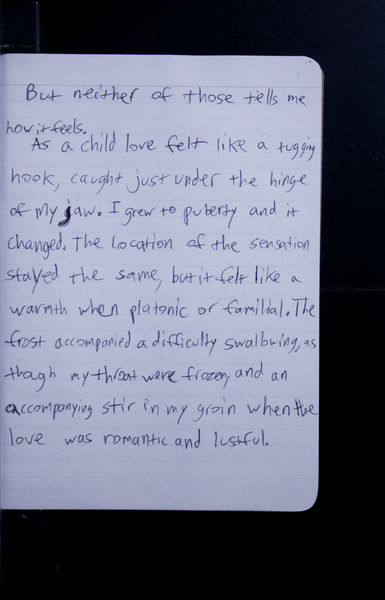 But neither of those tells me
how it feels.
As a child love felt like a tugging
hook, caught just under the hinge
of my jaw. I grew to puberty and it
changed. The location of the sensation
stayed the same, but it felt like a
warmth when platonic or familial. The
frost accompanied a difficulty swallowing, as
though my throat were frozen, and an
accompanying stir in my groin when the
love was romantic and lustful.